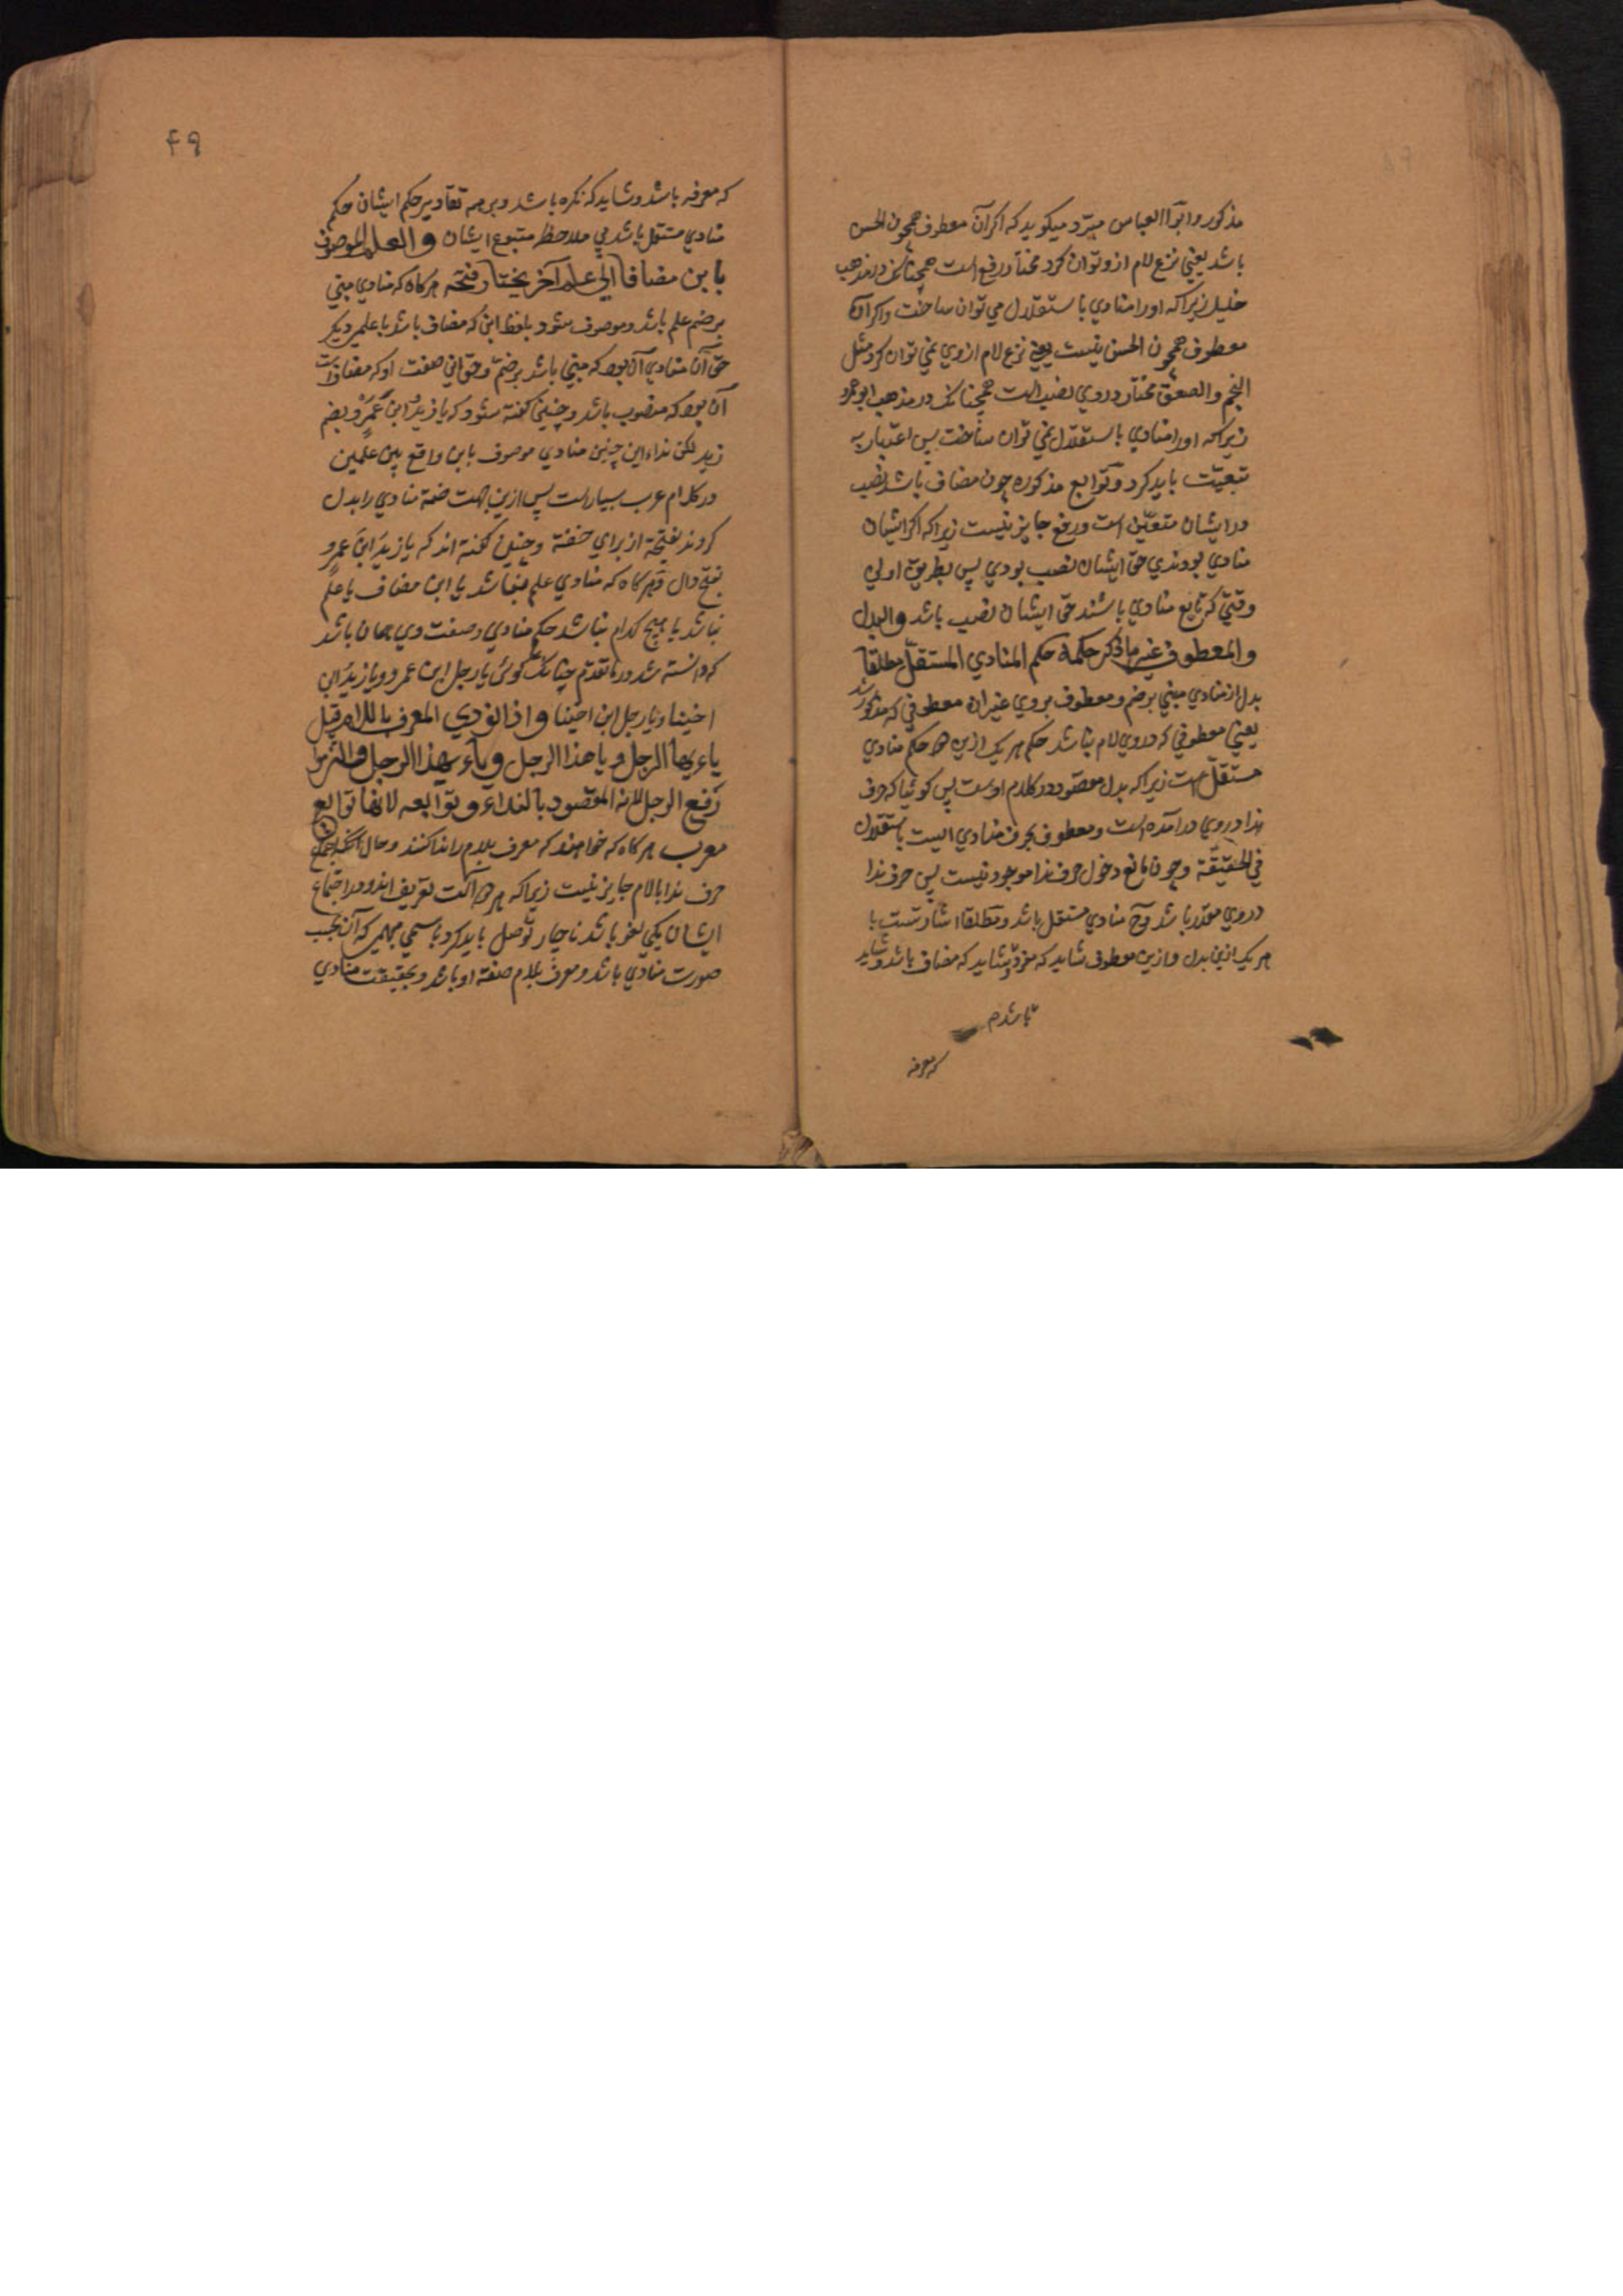 مذکور و ابوا العباس مبرّد میکوید که اکر آن معطوف همچون الحسن
باشد یعنی نزع لام ازو توان کرد مختار رفع است همچنانکه در مذهب
خلیل زیراکه اورا منادي باستقلال مي توان ساخت و اکر آن
معطوف همچون الحسن نیست یعنی نزع لام ازوي نمي توان کرد مثل
النجم والصعق مختار دروي نصب است همچنانکه در مذهب ابو عمرو
زیراکه اورا منادي باستقلال نمي توان ساخت پس اعتبار به
تبعیّت باید کرد و توابع مذکوره چون مضاف باشد نصب
در ایشان متعیّن است و رفع جایز نیست زیراکه اکر ایشان
منادي بودندي حقّ ایشان نصب بودي پس بطریق اولي
وقتي که تابع منادي باشند حقّ ایشان نصب باشد والبدل
والمعطوف غیر ما ذکر حکمه حکم المنادي المستقلّ مطلقا
بدل از منادي مبني بر ضم و معطوف بروي غیر ان معطوفي که مذکور شد
یعني معطوفي که دروي لام نباشد حکم هر یک ازین دو حکم منادي
مستقلّ است زیراکه بدل مقصود در کلام اوست پس کوئیا که حرف
ندا دروي درامده است و معطوف بحرف منادي است باستقلال
في الحقیقة و چون مانع دخول حرف ندا موجود نیست پس حرف ندا
دروي مقدّر باشد و منادي مستقل باشد و مطلقا اشارتست با
هر یک ازین بدل و ازین معطوف شاید که مفرد و شاید که مضاف باشد و شاید
باشد م
که معرفه
۴۹
که معرفه باشد و شاید که نکره باشد و بر همه تقادیر حکم ایشان حکم
منادي مستقل باشد بي ملاحظه متبوع ایشان والعلم الموصوف
بابن مضافا الی علم آخر یختار فتحه هرکاه که منادي مبني
بر ضم علم باشد و موصوف شود بلفظ ابن که مضاف باشد با علمي دیکر
حقّ آن منادي آن بود که مبني باشد بر ضمّ و حقّ ابن صفت او که مضافست
آن بود که منصوب باشد و چنین کفته شود که یا زیدُ ابنَ عمرٍو بضم
زید لکن نداء این چنین منادي موصوف بابن واقع بین علمین
در کلام عرب بسیار است پس ازین جهت ضمهٔ منادي را بدل
کردند بفتحة از براي خفّة و چنین کفته اند که یا زیدَ ابنَ عمرٍو
بفتح دال و هرکاه که منادي علم نباشد یا ابن مضاف با علم
نباشد یا هیچ کدام نباشد حکم منادي و صفت وي همان باشد
که دانسته شد در ما تقدّم چنانک کوئی یا رجل ابن عمرو و یا زیدُ ابن
اخینا و یا رجل ابن اخینا و اذا نودي المعرف باللام قیل
یا ایها الرجل و یا هذا الرجل و یا ایهذا الرجل والتزموا
رفع الرجل لانه المقصود بالنداء و توابعه لانها توابع
معرب هرکاه که خواهند که معرف بلام را ندا کنند و حال آنکه اجتماع
حرف ندا با لام جایز نیست زیراکه هر دو آلت تعریف اند و در اجتماع
ایشان یکي لغو باشد ناچار توصل باید کرد باسمي مبهم که آن بحسب
صورت منادي باشد و معرف بلام صفة او باشد و بحقیقت منادي